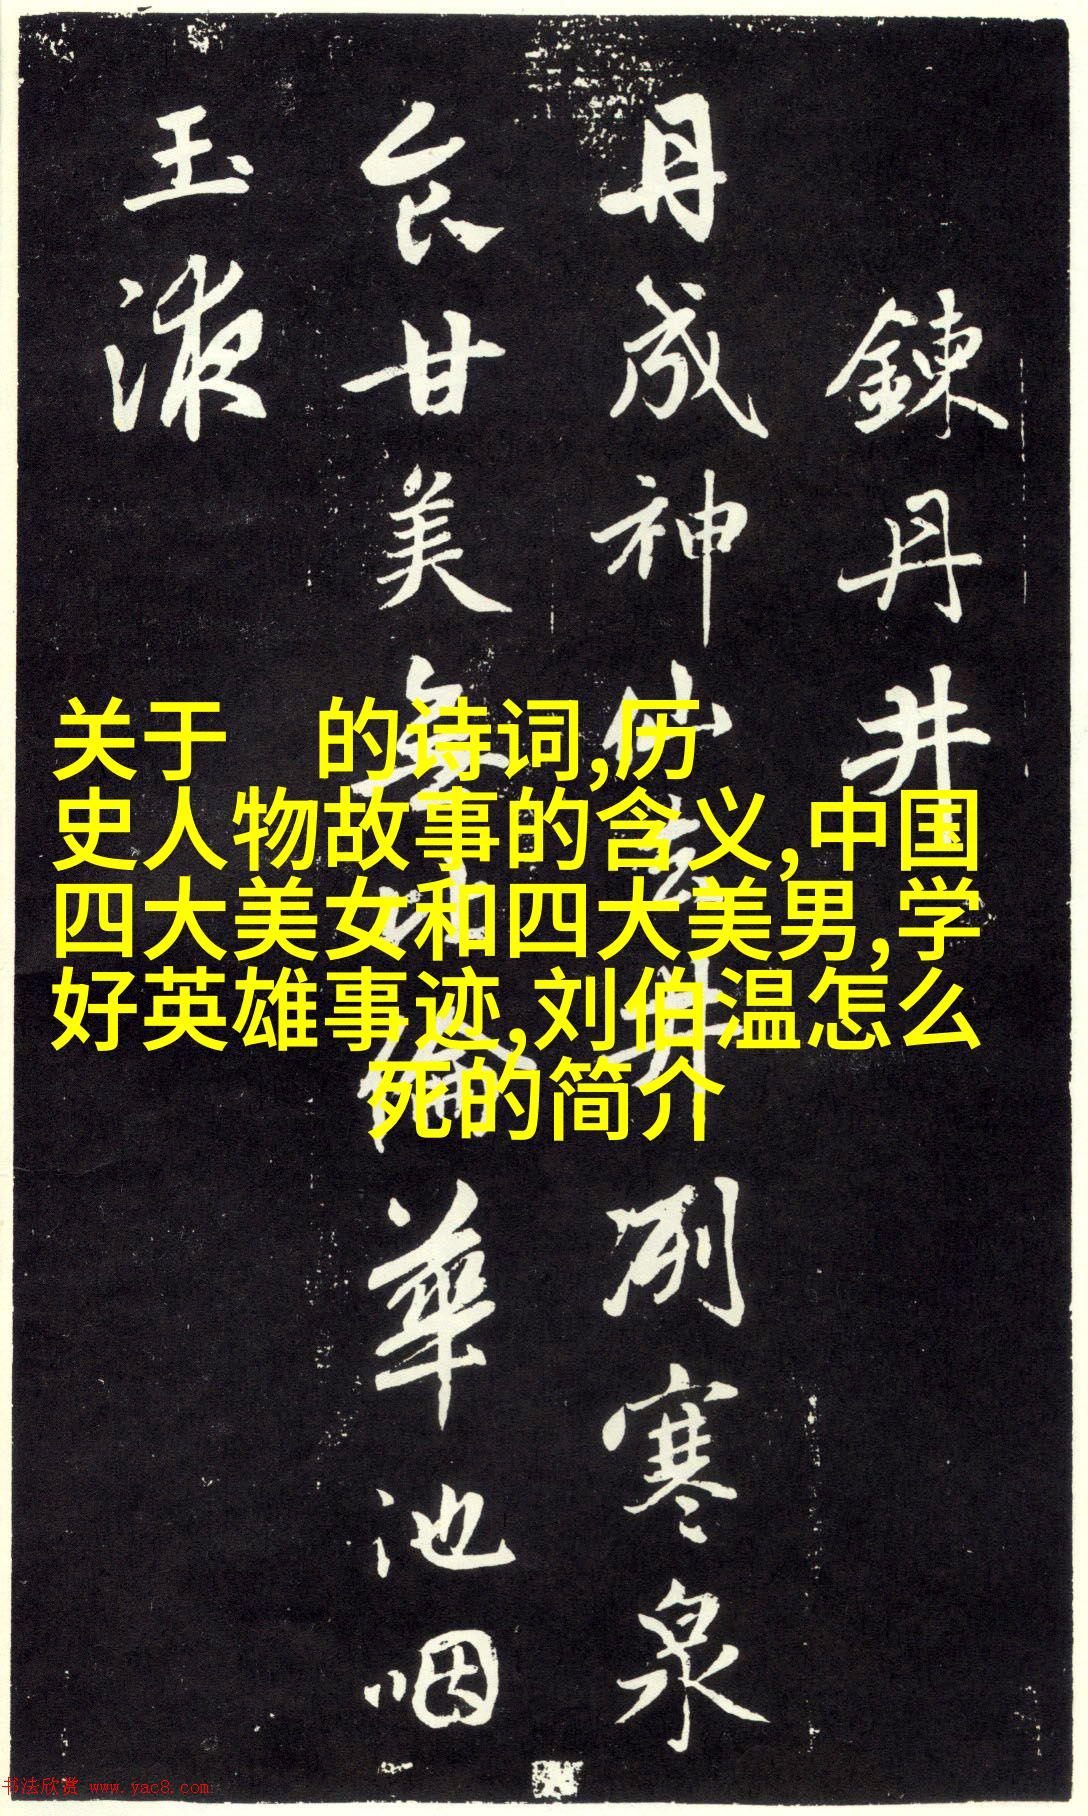 鍊丹井
丹成神仙去井冽寒泉
食甘美無比倫華池咽
玉液
关于 的诗词,历
史人物故事的含义,中国
四大美女和四大美男,学
好英雄事迹,刘伯温怎么
死的简介
书法欣赏 www.yac8.com